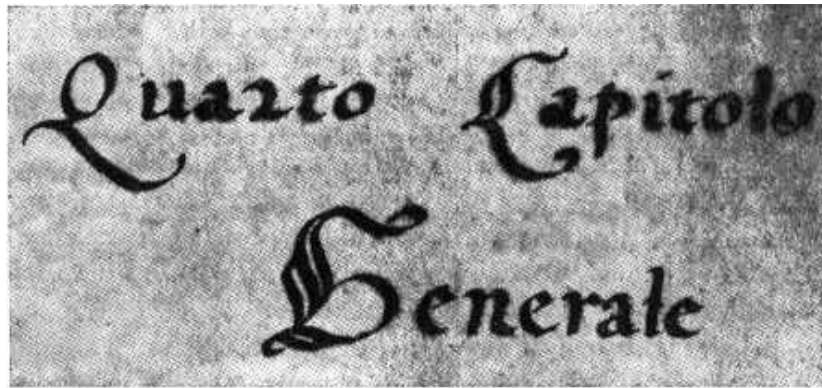 Quarto Capitolo
Generale